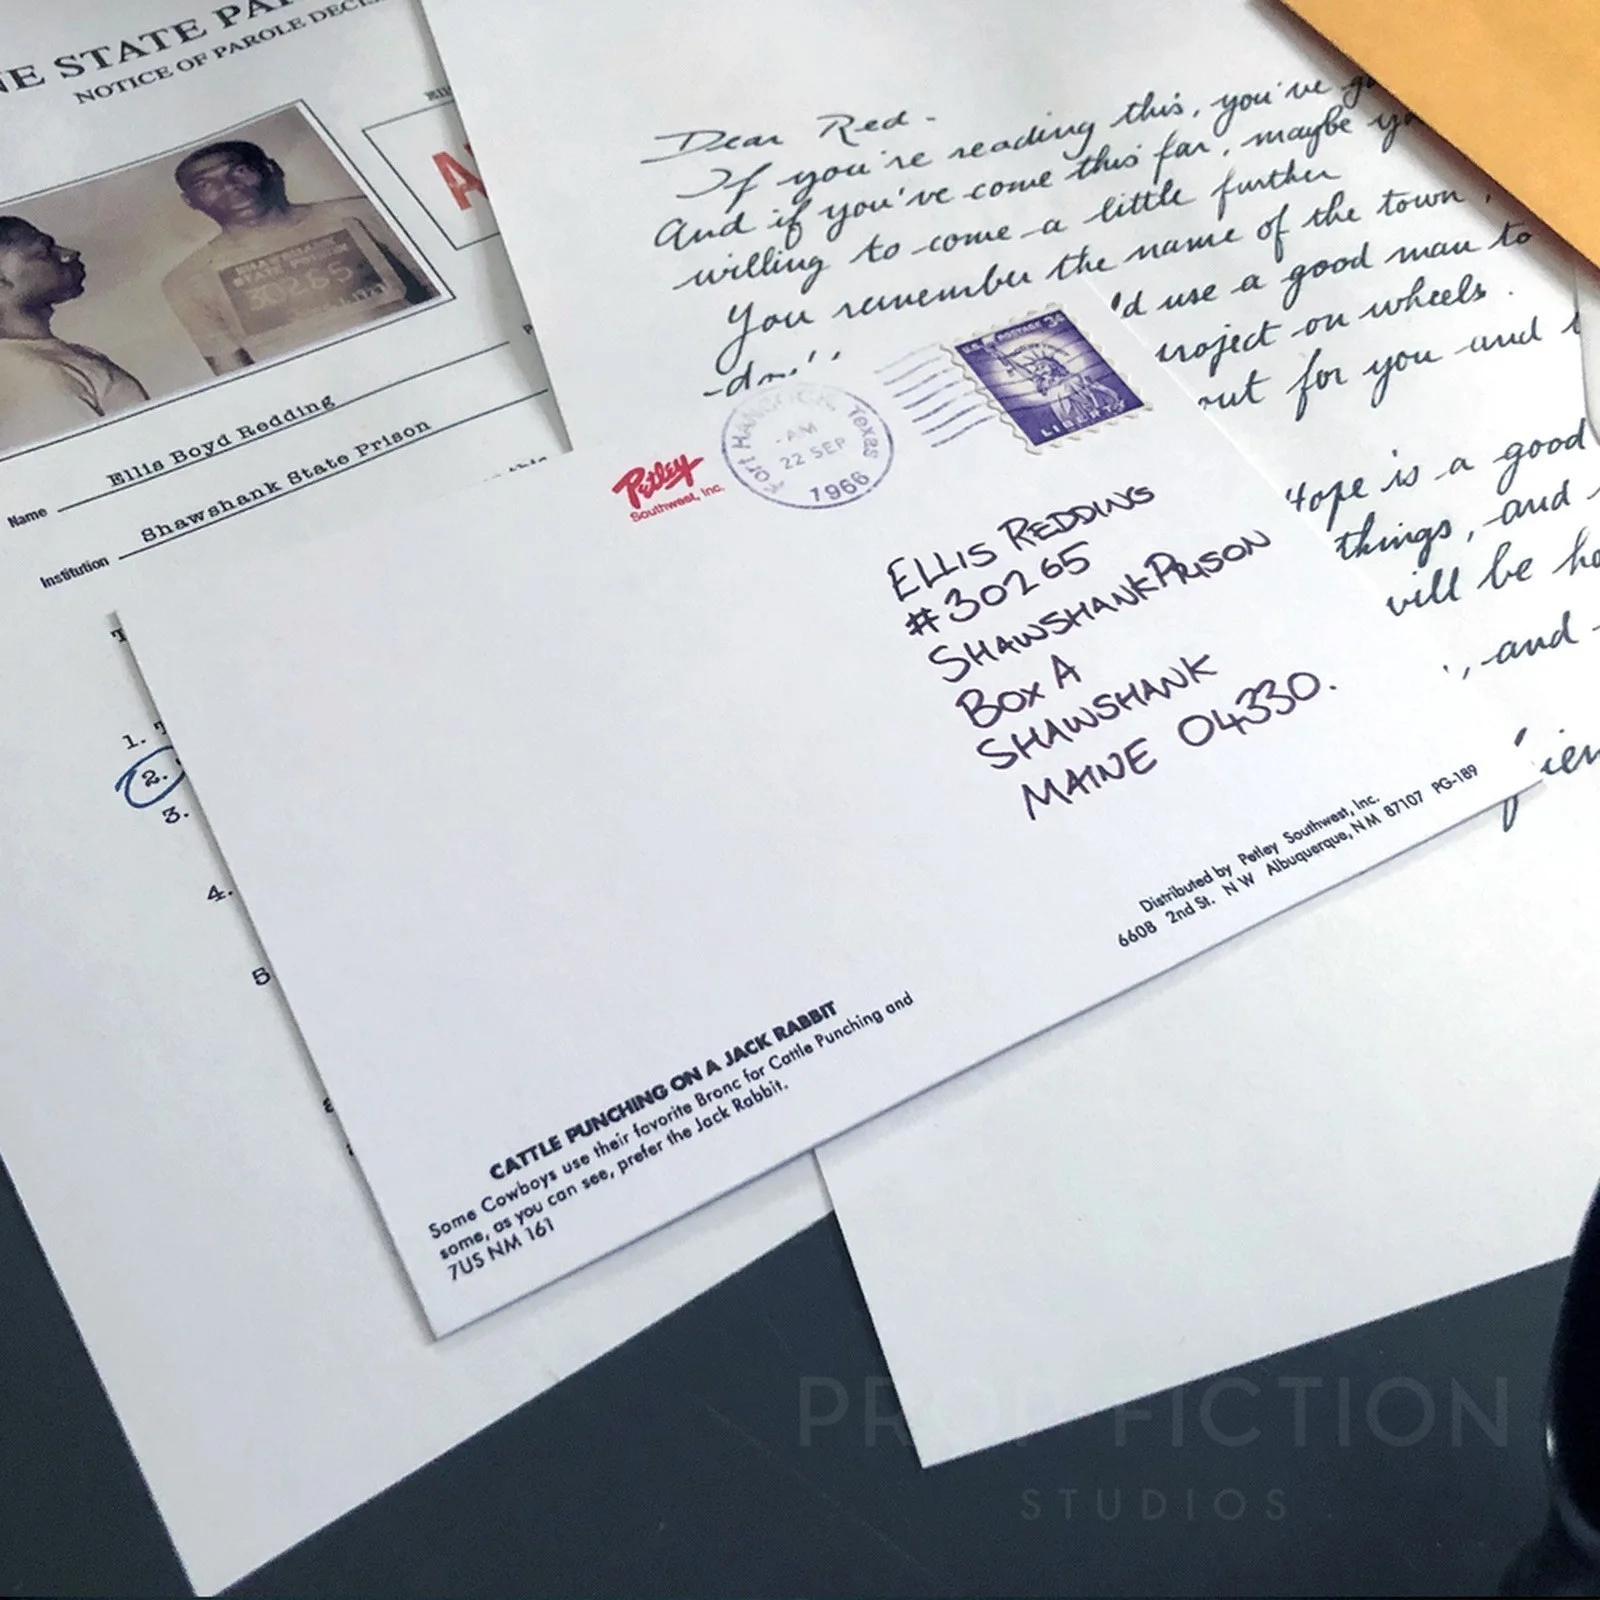 STATE
NOTICE OF PAROLE
SHAWSHANK
30265
Name Ellis Boyd Redding
Institution Shawshank State Prison
1.
2.
3.
4.
5
Dear Red.
If you're reading this, you've
And if you've come this far, maybe
willing to come a little further
You remember the name of the town,
use a good man to
project on wheels.
out for you and
Hope is a good
things, and
will be
, and
U.S. POSTAGE 3¢
LIBERTY
Fort HANCOCK, Texas
-AM
22 SEP
1966
Petley
Southwest, Inc.
ELLIS REDDING
#30265
SHAWSHANK PRISON
BOX A
SHAWSHANK
MAINE 04330.
Distributed by Petley Southwest, Inc.
6608 2nd St. N W Albuquerque, N M 87107 PG-189
CATTLE PUNCHING ON A JACK RABBIT
Some Cowboys use their favorite Bronc for Cattle Punching and
some, as you can see, prefer the Jack Rabbit.
7US NM 161
PROP FICTION
STUDIOS